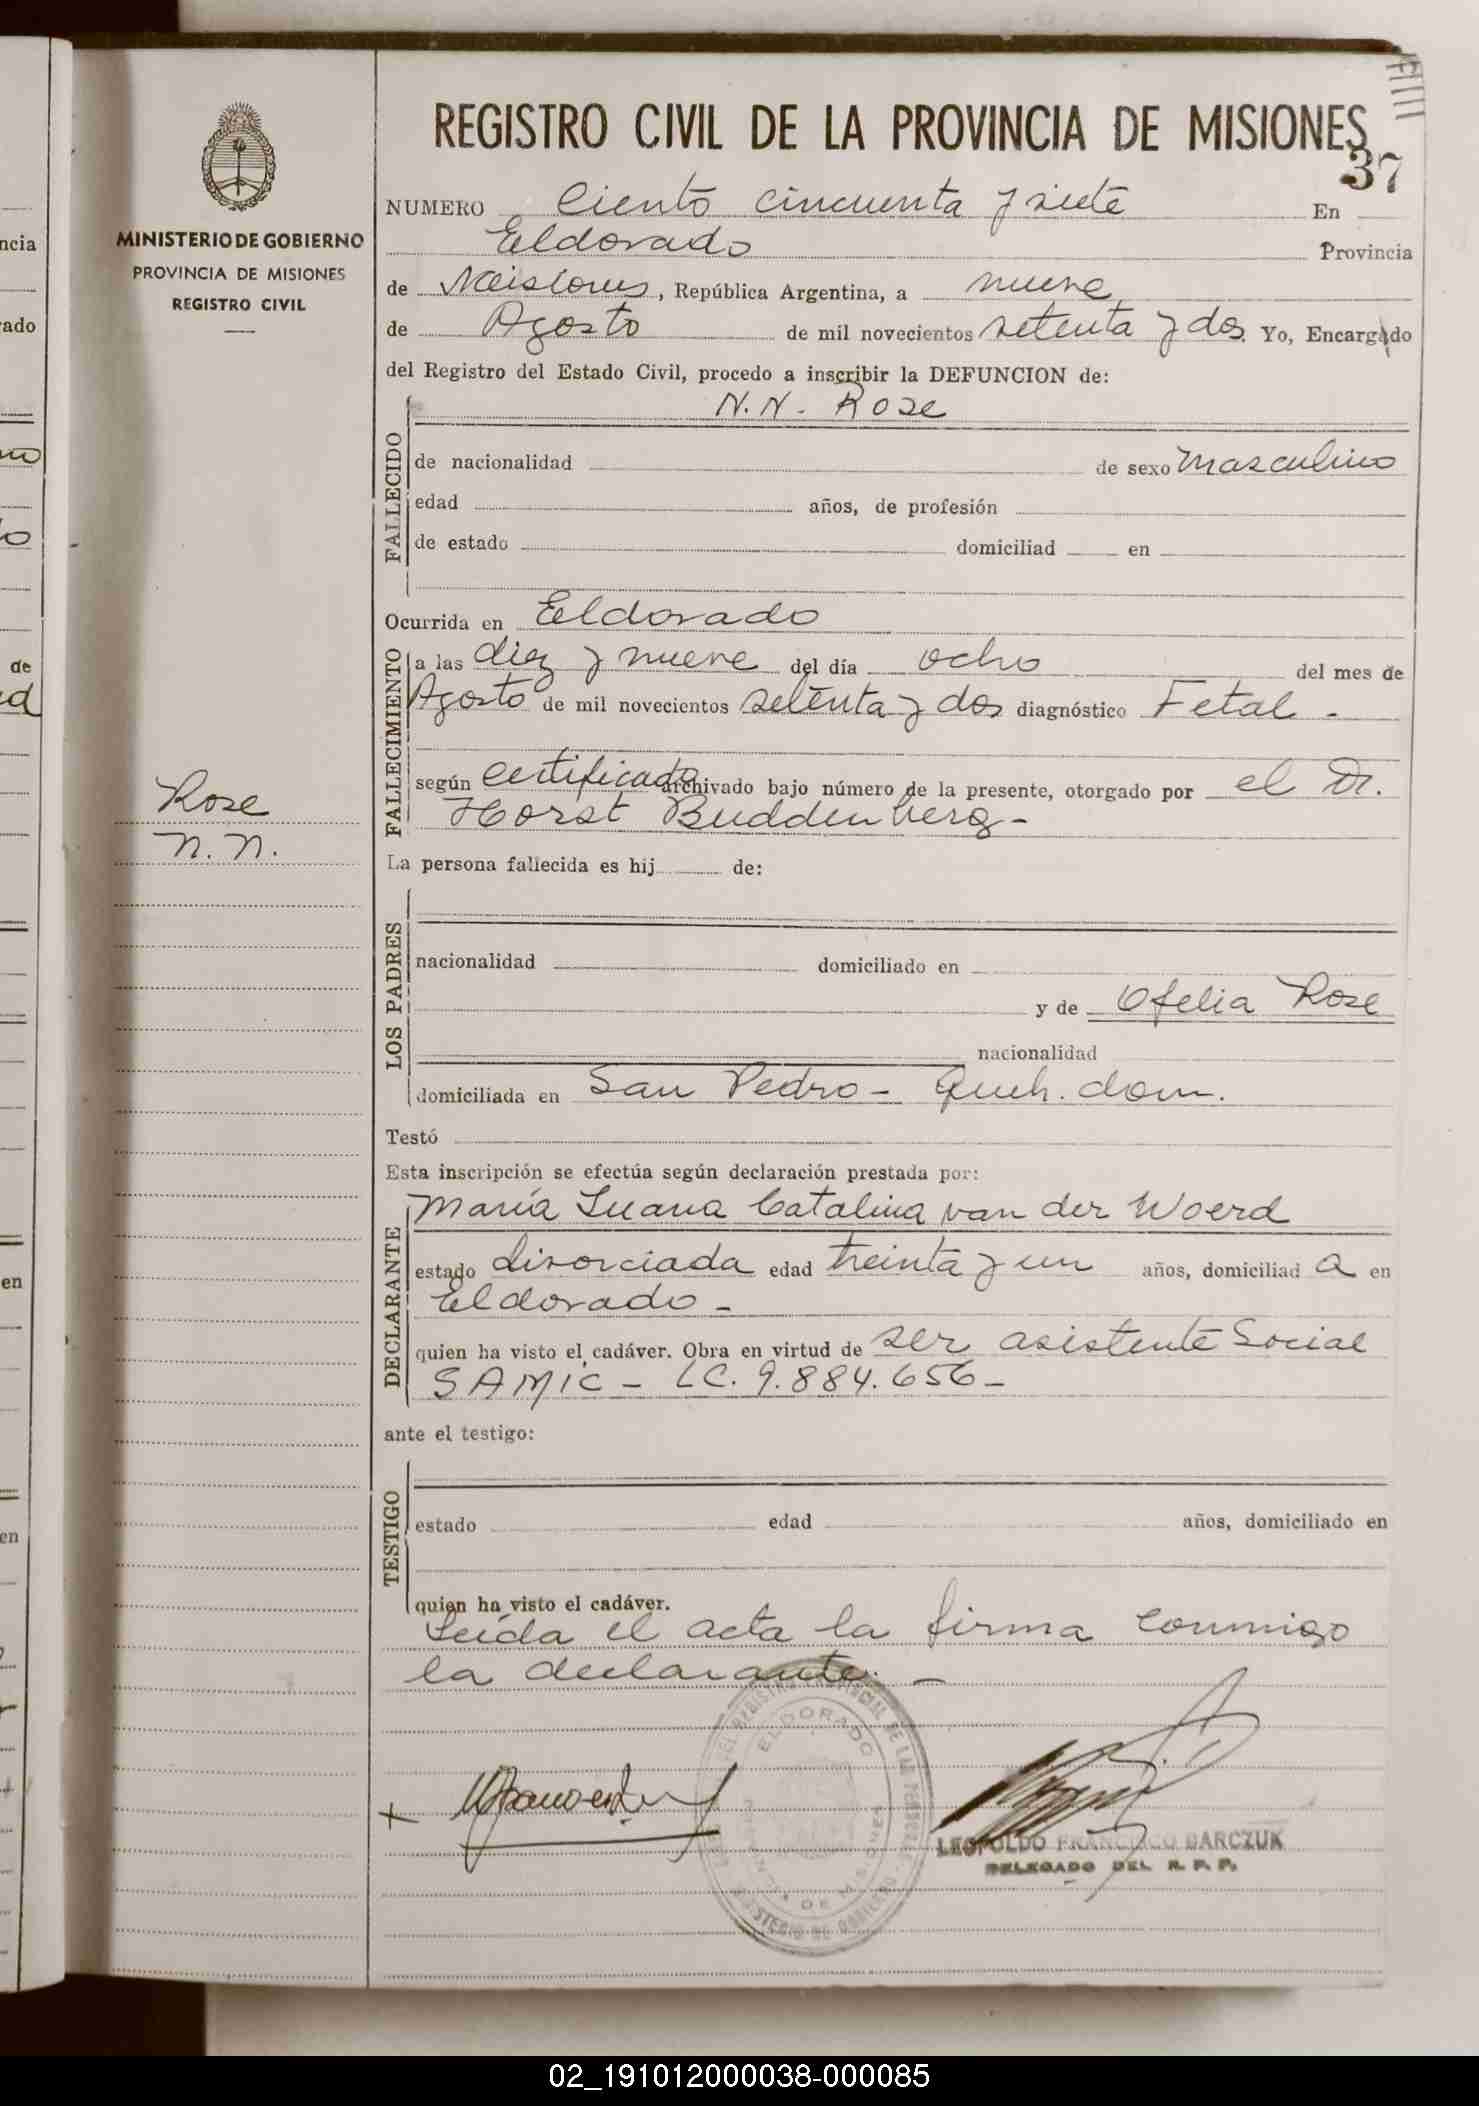 REGISTRO CIVIL DE LA PROVINCIA DE MISIONES
37
MINISTERIO DE GOBIERNO
PROVINCIA DE MISIONES
REGISTRO CIVIL
Rose
N. N.
NUMERO Ciento cincuenta y siete En
Eldorado Provincia
de Misiones, República Argentina, a nueve
de Agosto de mil novecientos setenta y dos Yo, Encargado
del Registro del Estado Civil, procedo a inscribir la DEFUNCION de:
N. N. Rose
FALLECIDO
de nacionalidad de sexo Masculino
edad años, de profesión
de estado domiciliad en
Ocurrida en Eldorado
FALLECIMIENTO
a las diez y nueve del día ocho del mes de
Agosto de mil novecientos setenta y dos diagnóstico Fetal -
según certificado archivado bajo número de la presente, otorgado por el Dr.
Horst Buddenberg -
La persona fallecida es hij de:
LOS PADRES
nacionalidad domiciliado en
y de Ofelia Rose
nacionalidad
domiciliada en San Pedro - Queh. dom.
Testó
Esta inscripción se efectúa según declaración prestada por:
DECLARANTE
María Luana Catalina van der Woerd
estado divorciada edad treinta y un años, domiciliad a en
Eldorado -
quien ha visto el cadáver. Obra en virtud de ser asistente Social
SAMIC - LC. 9.884.656 -
ante el testigo:
TESTIGO
estado edad años, domiciliado en
quien ha visto el cadáver.
Leída el acta la firma conmigo
la declarante. -
ELDORADO
LEOPOLDO FRANCISCO BARCZUK
DELEGADO DEL R. P. P.
02_191012000038-000085